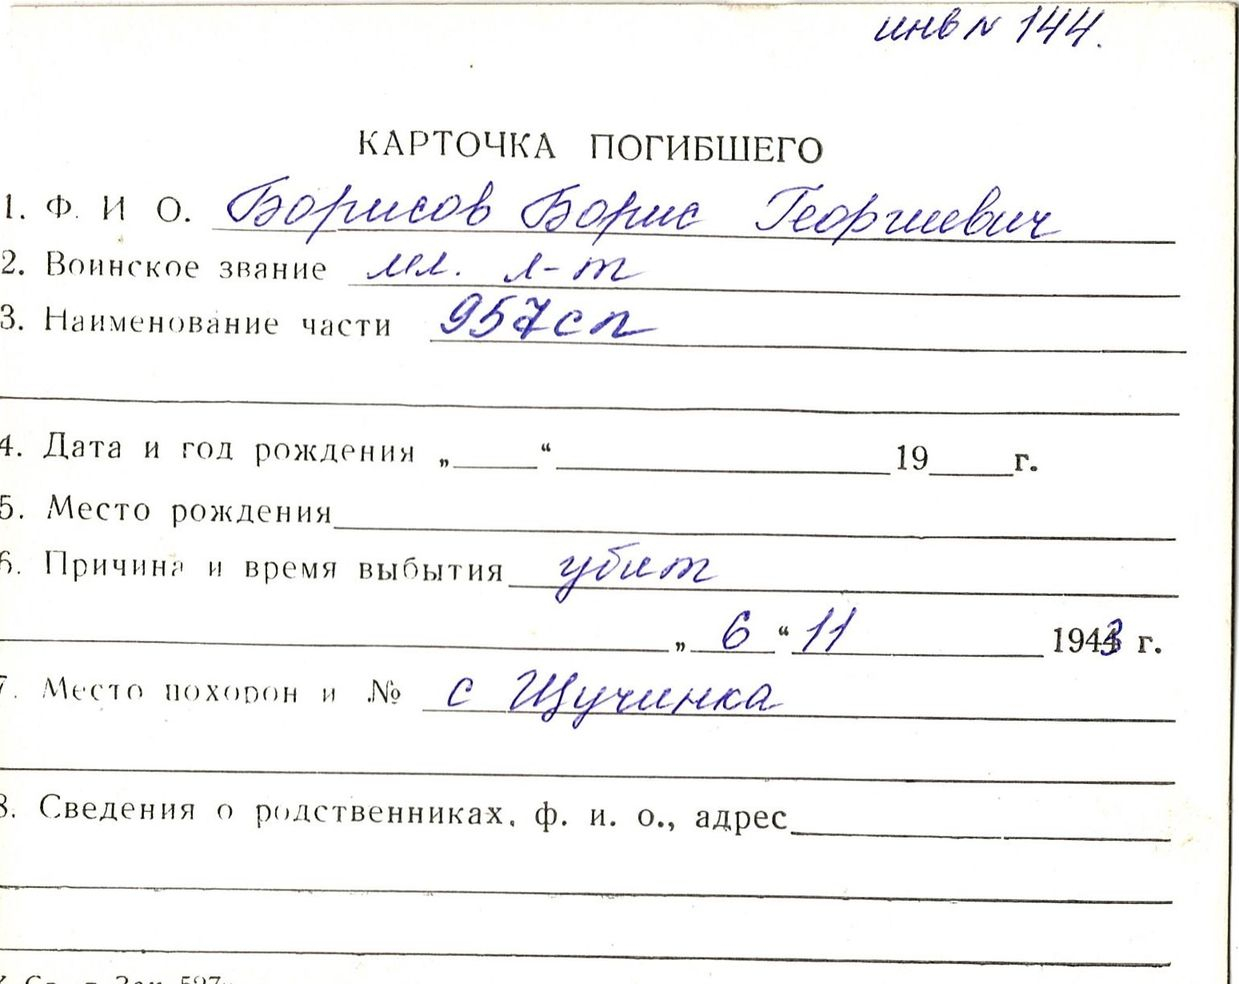 инв N 144.
КАРТОЧКА ПОГИБШЕГО
1. Ф. И О. Борисов Борис Георгиевич
2. Воинское звание мл. л-т
3. Наименование части 957сп
4. Дата и год рождения „ “ 19 г.
5. Место рождения
6. Причина и время выбытия убит
„ 6 “ 11 1943 г.
7. Место похорон и № с Щучинка
8. Сведения о родственниках, ф. и. о., адрес